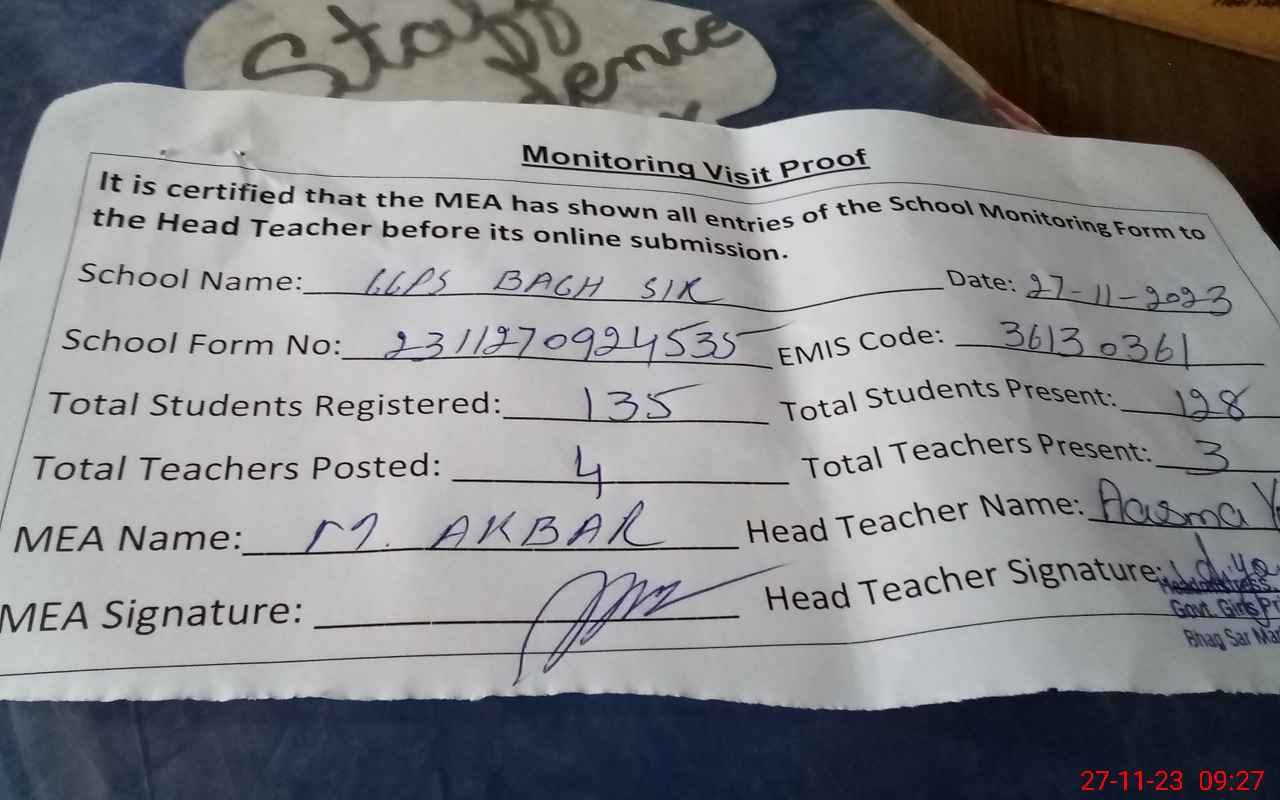 Staff
Monitoring Visit Proof
It is certified that the MEA has shown all entries of the School Monitoring Form to
the Head Teacher before its online submission.
School Name: GGPS BAGH SIR Date: 27-11-2023
School Form No: 2311270924535 EMIS Code: 36130361
Total Students Registered: 135 Total Students Present: 128
Total Teachers Posted: 4 Total Teachers Present: 3
MEA Name: M. AKBAR Head Teacher Name: Aasma
MEA Signature: Head Teacher Signature:
Govt. Girls Pri
Bhag Sar Ma
27-11-23 09:27